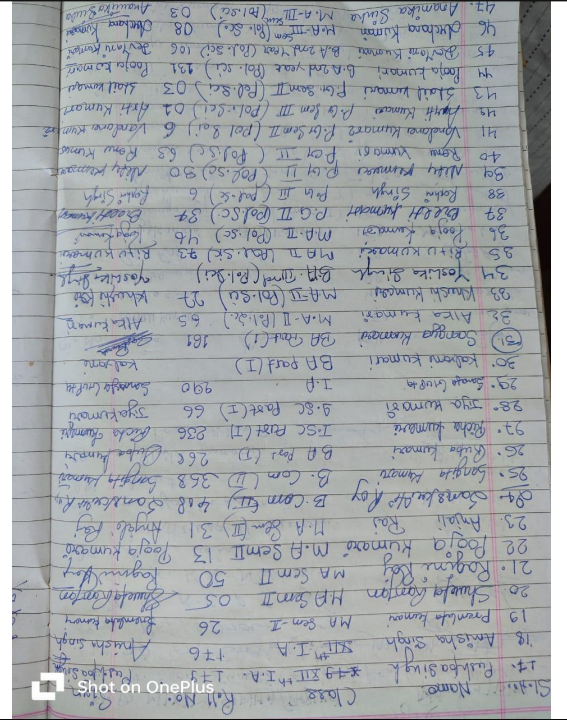 Sl. No. Name Class Roll No. Sign
17. Pushpa Singh XII th I.A. 179 Pushpa Singh
18. Anisha Singh XII th I.A. 176 Anisha Singh
19 Premlata kumari MA Sem-II 26 Premlata kumari
20 Shweta Ranjan MA Sem II 05 Shweta Ranjan
21. Ragini Roy MA Sem II 50 Ragini Roy
22 Pooja Kumari M.A Sem II 13 Pooja kumari
23. Anjali Raj M.A. Sem (II) 31 Anjali Raj
24. Roy B.Com (II) 408
25. Sangita Kumari B.Com (II) 358 Sangita Kumari
26. Ruba kumari BA Part (I) 268 Ruba kumari
27. Richa kumari I.SC Part (I) 236 Richa kumari
28. Jya kumari I.SC Part (I) 66 Jya kumari
29. Gupta I.A 990 Gupta
30. Kalyani kumari BA Part (I) Kalyani
31. Sangya kumari BA Part (I) 161
32. Alka kumari M.A-II (Pol.Sc) 65 Alka kumari
33. Khushi Kumari MA-II (Pol.Sci) 27 Khushi
34 Singh BA (Pol.Sci) Singh
35 Ritu kumari MA II (Pol.Sci) 73 Ritu kumari
36. Pooja kumari M.A-II (Pol.Sc) 46 Pooja kumari
37 kumari P.G II (Pol.Sc) 37
38 Rohini Singh P.G III (Pol.Sc) 6 Rohini Singh
39 kumari P.G II (Pol.Sc) 30
40 Renu kumari P.G II (Pol.Sc) 63 Renu Kumari
41 Vandana kumari P.G Sem II (Pol.Sci) 6 Vandana kumari
42 Arti kumari P.G Sem III (Pol.Sci) 02 Arti kumari
43 kumari P.G Sem II (Pol.Sci) 03 kumari
44 Pooja kumari B.A 2nd year (Pol.Sci) 131 Pooja kumari
45 kumari B.A 2nd Year (Pol.Sci) 106 kumari
46 Archana kumari M.A-III Sem (Pol.Sc) 08 Archana Kumari
47. Anamika Sinha M.A-III Sem (Pol.Sci) 03 Anamika Sinha
Shot on OnePlus